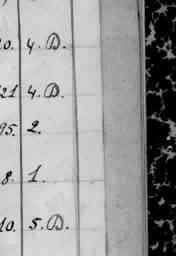 0. 4. D.
21 4. D.
95. 2.
8. 1.
10. 5. D.